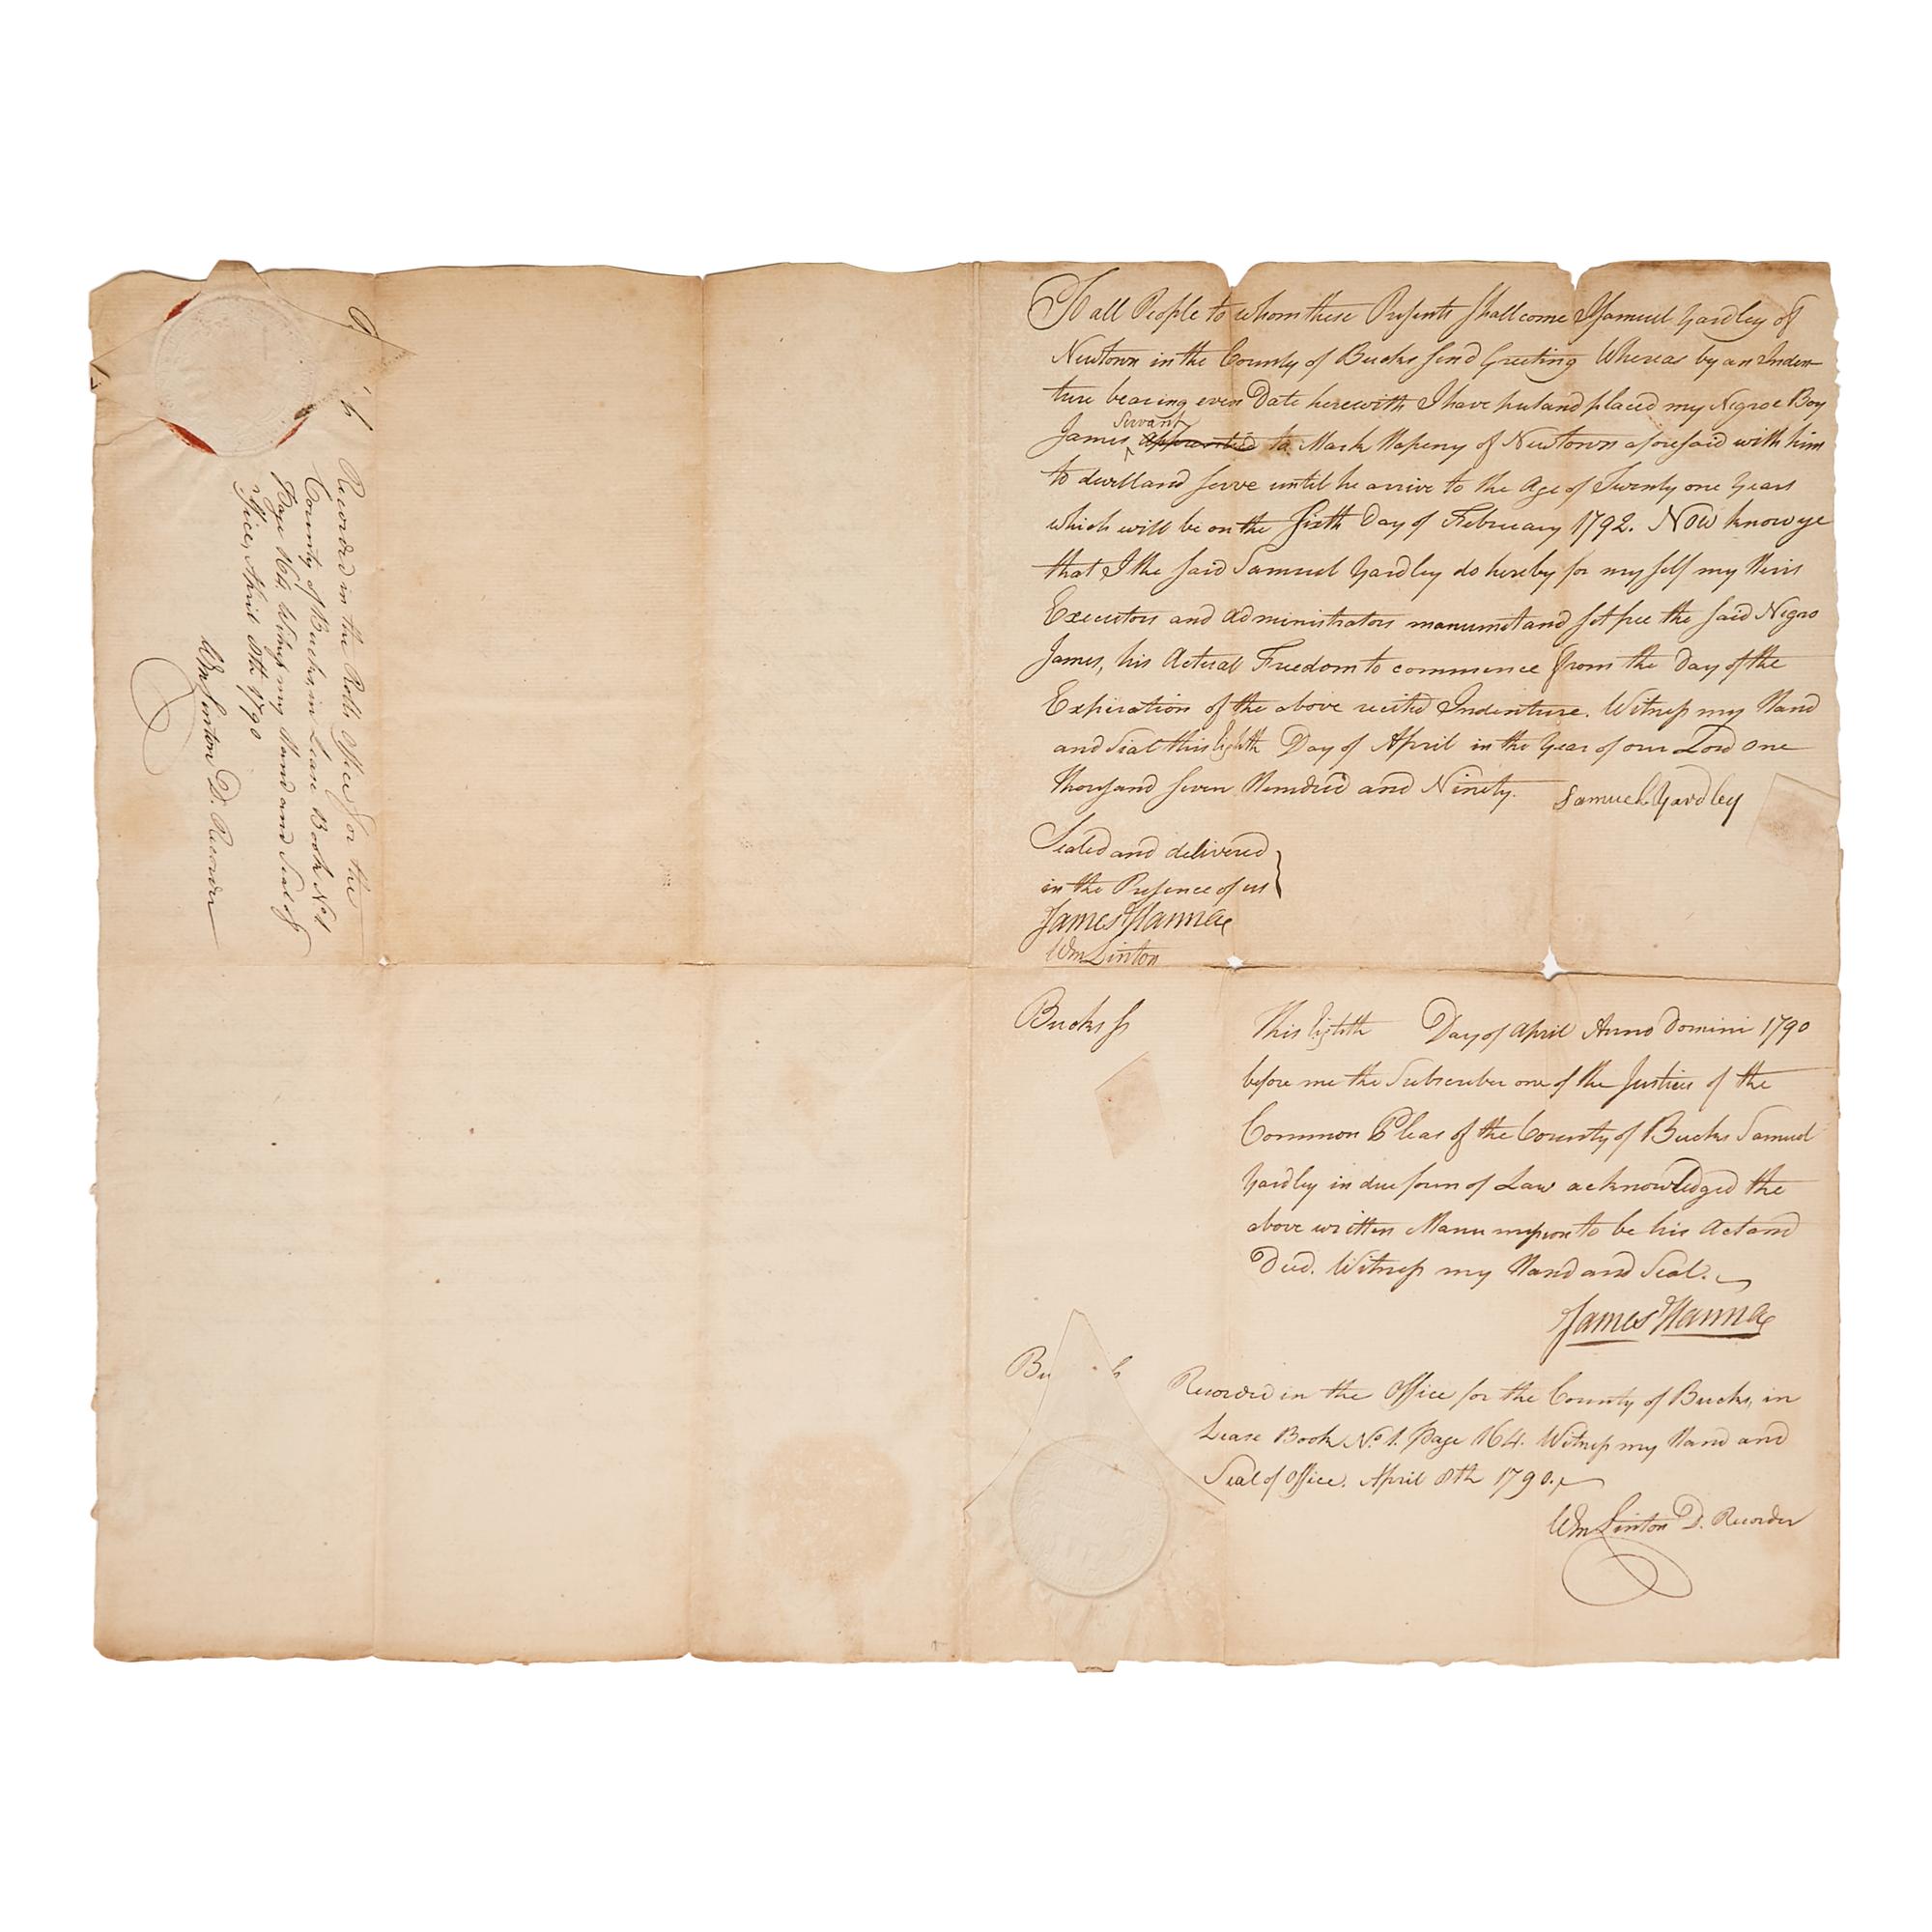 To all People to whom these Presents shall come I Samuel Yardley of
Newtown in the County of Bucks send Greeting Whereas by an Inden-
ture bearing even Date herewith I have put and placed my Negroe Boy
Servant
James, apprentice to Mark Hapeny of Newtown aforesaid with him
to dwell and serve until he arrive to the Age of Twenty one Years
which will be on the sixth Day of February 1792. Now know ye
that I the said Samuel Yardley do hereby for my self my Heirs
Executors and Administrators manumit and set free the said Negro
James, his Actual Freedom to commence from the Day of the
Expiration of the above recited Indenture. Witness my Hand
and Seal this Eighth Day of April in the Year of our Lord One
thousand seven Hundred and Ninety.
Samuel Yardley
Sealed and delivered
in the Presence of us
James Hanna
Wm Linton
Bucks ss
This Eighth Day of April Anno Domini 1790
before me the Subscriber one of the Justices of the
Common Pleas of the County of Bucks Samuel
Yardley in due form of Law acknowledged the
above written Manumission to be his Act and
Deed. Witness my Hand and Seal.
James Hanna
Bu s
Recorded in the Office for the County of Bucks, in
Lease Book No. 1. Page 164. Witness my Hand and
Seal of Office. April 8th 1790.
Wm Linton D. Recorder
Recorded in the Rolls Office for the
County of Bucks, in Lease Book No. 1
Page 164. Witness my Hand and Seal of
Office, April 8th 1790
Wm Linton D. Recorder